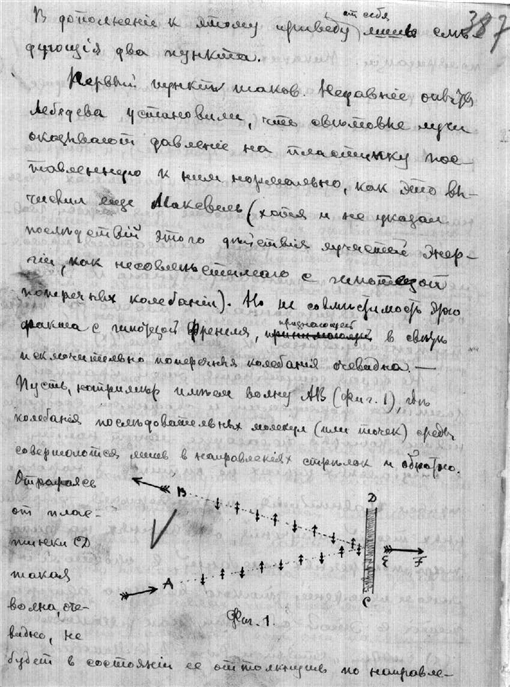 387
отъ себя
Въ дополненіе къ этому приведу лишь слѣ-
дующій два пункта.
Первый пунктъ таковъ. Недавніе опыты
Лебедева установили, что свѣтовые лучи
оказываютъ давленіе на пластинку пос-
тавленную къ нимъ нормально, какъ это вы-
числилъ еще Максвелль (хотя и не указалъ
послѣдствій этого дѣйствія лучистой энер-
гіи, какъ несовмѣстимаго съ гипотезой
поперечныхъ колебаній). Но не совмѣстимость этого
признающей
факта съ гипотезой Френеля, въ свѣтѣ
исключительно поперечныя колебанія очевидна.—
Пусть, напримѣръ имѣемъ волну АВ (фиг. 1), гдѣ
колебанія послѣдовательныхъ молекулъ (или точекъ) среды
совершаются лишь въ направленіяхъ стрѣлокъ и обратно.
Отражаясь
отъ плас-
тинки CD
такая
волна, оче-
видно, не
B
D
A
C
E
F
Фиг. 1.
будетъ въ состояніи ее оттолкнуть по направле-